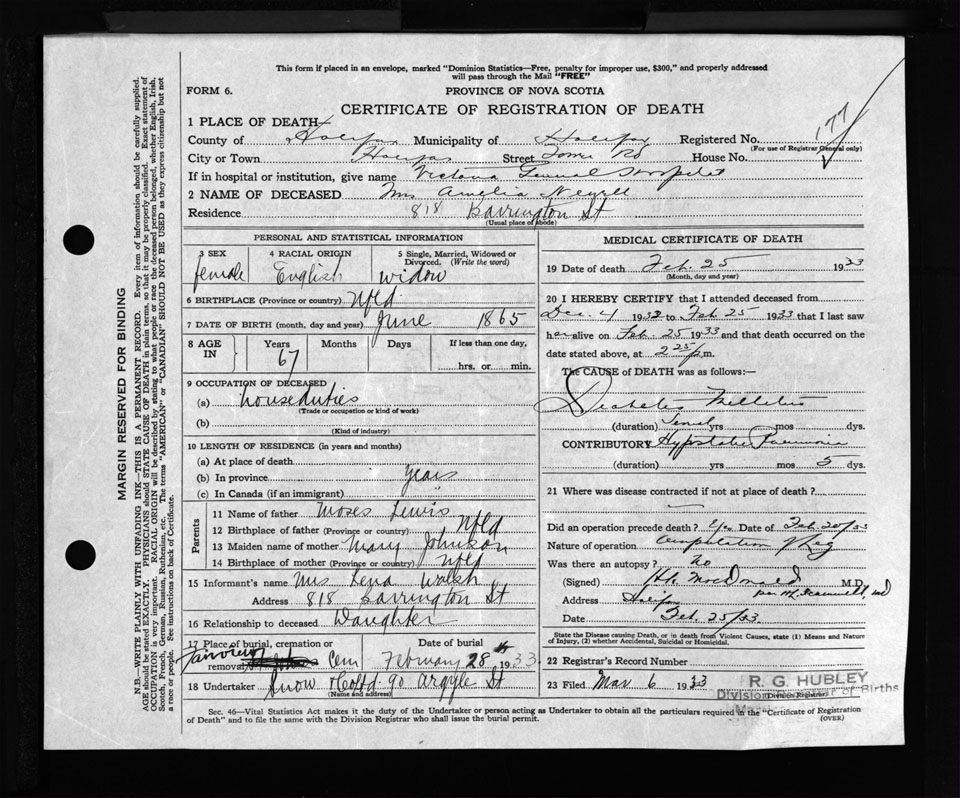 This form if placed in an envelope, marked "Dominion Statistics—Free, penalty for improper use, $300," and properly addressed
will pass through the Mail "FREE"
FORM 6. PROVINCE OF NOVA SCOTIA
CERTIFICATE OF REGISTRATION OF DEATH
1 PLACE OF DEATH
County of Halifax Municipality of Halifax Registered No.
(For use of Registrar General only)
177
City or Town Halifax Street Tower Rd House No.
If in hospital or institution, give name Victoria General Hospital
2 NAME OF DECEASED Mrs Amelia
Residence 818 Barrington St
(Usual place of abode)
PERSONAL AND STATISTICAL INFORMATION
3 SEX 4 RACIAL ORIGIN 5 Single, Married, Widowed or Divorced. (Write the word)
female English widow
6 BIRTHPLACE (Province or country) Nfld.
7 DATE OF BIRTH (month, day and year) June 1865
8 AGE IN Years Months Days If less than one day,
67 hrs. or min.
9 OCCUPATION OF DECEASED
(a) houseduties
(Trade or occupation or kind of work)
(b)
(Kind of industry)
10 LENGTH OF RESIDENCE (in years and months)
(a) At place of death
(b) In province years
(c) In Canada (if an immigrant)
Parents
11 Name of father Moses Lewis
12 Birthplace of father (Province or country) Nfld
13 Maiden name of mother Mary Johnson
14 Birthplace of mother (Province or country) Nfld
15 Informant's name Mrs Lena Walsh
Address 818 Barrington St
16 Relationship to deceased Daughter
17 Place of burial, cremation or removal Date of burial
Fairview Cem February 28th 1933
18 Undertaker Snow & Co Ltd 90 Argyle St
(Name and address)
MEDICAL CERTIFICATE OF DEATH
19 Date of death Feb. 25 1933
(Month, day and year)
20 I HEREBY CERTIFY that I attended deceased from
Dec. 4 1932 to Feb 25 1933 that I last saw
her alive on Feb. 25 1933 and that death occurred on the
date stated above, at 2 25/p.m.
The CAUSE OF DEATH was as follows:—
Diabetes Mellitus
(duration) yrs mos dys.
CONTRIBUTORY Hypostatic Pneumonia
(duration) yrs mos 5 dys.
21 Where was disease contracted if not at place of death?
Did an operation precede death? Yes Date of Feb. 20/33
Nature of operation Amputation of leg
Was there an autopsy? no
(Signed) MacDonald M.D.
per M. md
Address Halifax
Date Feb 25/33
State the Disease causing Death, or in death from Violent Causes, state (1) Means and Nature
of Injury, (2) whether Accidental, Suicidal or Homicidal.
22 Registrar's Record Number
23 Filed Mar 6 1933
Division Registrar
R. G. HUBLEY
Division of Births
Sec. 46—Vital Statistics Act makes it the duty of the Undertaker or person acting as Undertaker to obtain all the particulars required in the "Certificate of Registration
of Death" and to file the same with the Division Registrar who shall issue the burial permit.
(OVER)
MARGIN RESERVED FOR BINDING
N.B.—WRITE PLAINLY WITH UNFADING INK—THIS IS A PERMANENT RECORD. Every item of information should be carefully supplied.
AGE should be stated EXACTLY. PHYSICIANS should STATE CAUSE OF DEATH in plain terms, so that it may be properly classified. Exact statement of
OCCUPATION is very important. RACIAL ORIGIN will be described by stating to what people or race the deceased person belonged, whether English, Irish,
Scotch, French, German, Russian, Ruthenian, etc. The terms "AMERICAN" or "CANADIAN" SHOULD NOT BE USED as they express citizenship but not
a race or people. See instructions on back of Certificate.